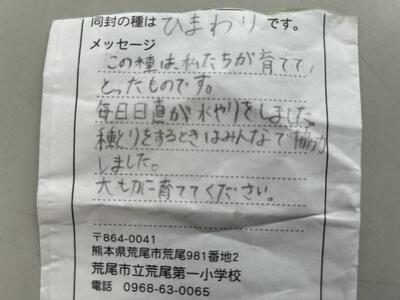 同封の種はひまわりです。
メッセージ
この種は、私たちが育てて、
とったものです。
毎日日直が水やりをしました。
種とりをするときはみんなで協力
しました。
大切に育ててください。
〒864-0041
熊本県荒尾市荒尾981番地2
荒尾市立荒尾第一小学校
電話 0968-63-0065